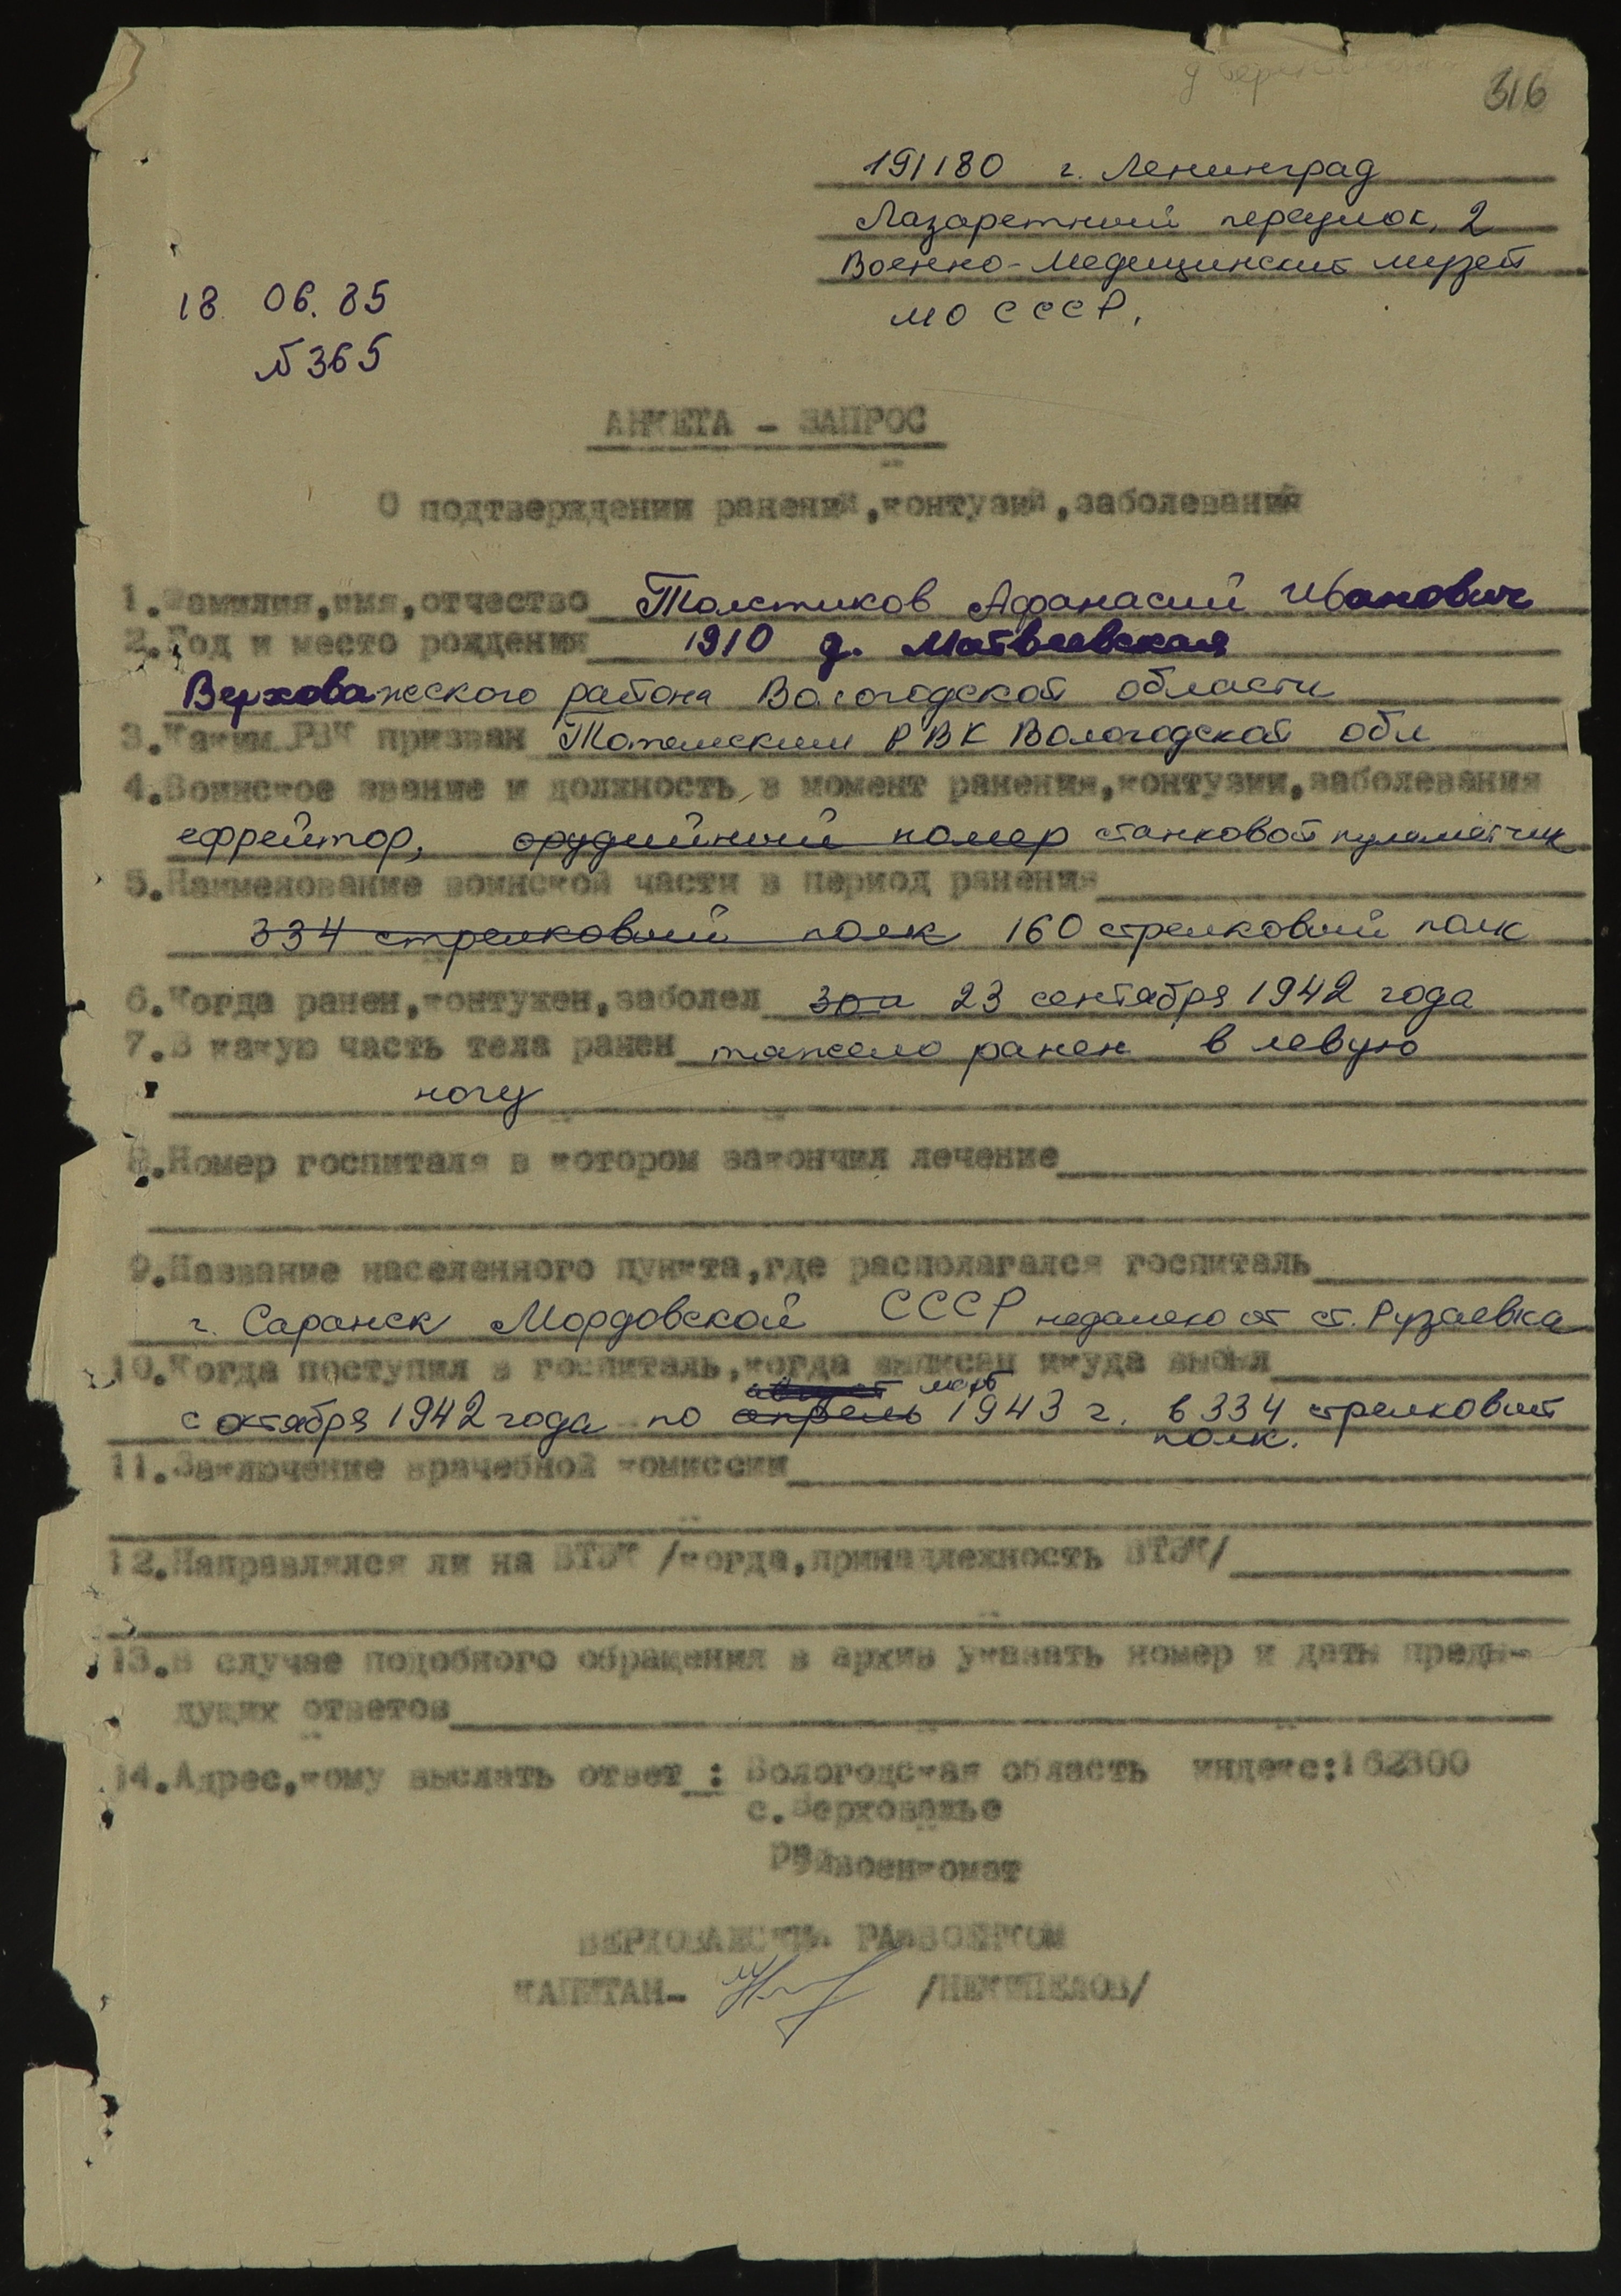 316
191180 г. Ленинград
Лазаретный переулок, 2
Военно-Медицинский музей
МО СССР.
18 06. 85
№ 365
АНКЕТА - ЗАПРОС
О подтверждении ранений,контузий,заболеваний
1.Фамилия,имя,отчество Толстиков Афанасий Иванович
2.Год и место рождения 1910 д. Матвеевская
Верховажского района Вологодской области
3.Каким РВК призван Тотемским РВК Вологодской обл
4.Воинское звание и должность в момент ранения,контузии,заболевания
ефрейтор, орудийный номер станковой пулеметчик
5.Наименование воинской части в период ранения
334 стрелковый полк 160 стрелковый полк
6.Когда ранен,контужен,заболел 23 сентября 1942 года
7.В какую часть тела ранен тяжело ранен в левую
ногу
8.Номер госпиталя в котором закончил лечение
9.Название населенного пункта,где располагался госпиталь
г. Саранск Мордовской СССР недалеко от ст. Рузаевка
10.Когда поступил в госпиталь,когда выписан и куда выбыл
август март
с октября 1942 года по апрель 1943 г. в 334 стрелковый
полк.
11.Заключение врачебной комиссии
12.Направлялся ли на ВТЭК /когда,принадлежность ВТЭК/
13.В случае подобного обращения в архив указать номер и даты преды-
дущих ответов
14.Адрес,кому выслать ответ : Вологодская область индекс:162300
с.Верховажье
Райвоенкомат
ВЕРХОВАЖСКИЙ РАЙВОЕНКОМ
КАПИТАН- /НЕКИПЕЛОВ/